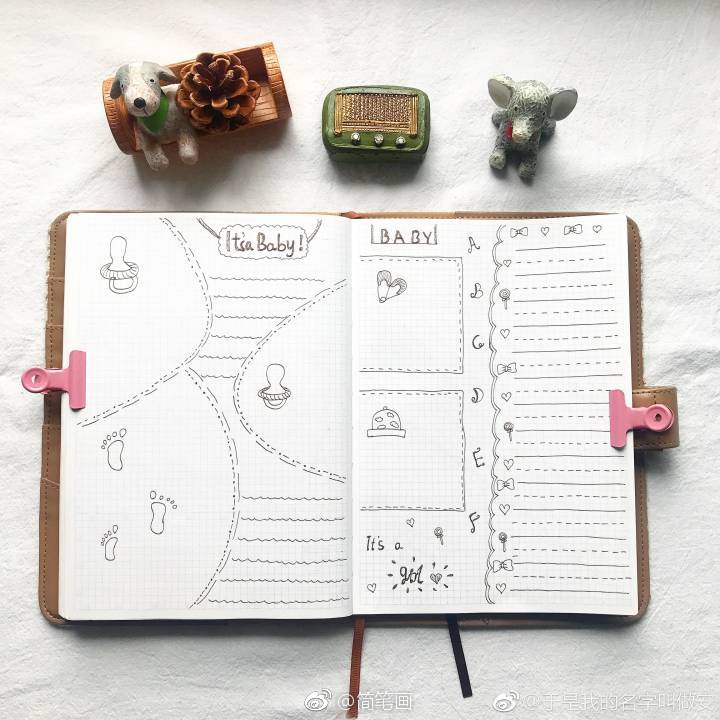 It's a Baby!
BABY
A
B
C
D
E
F
It's a
@简笔画
@于是我的名字叫做